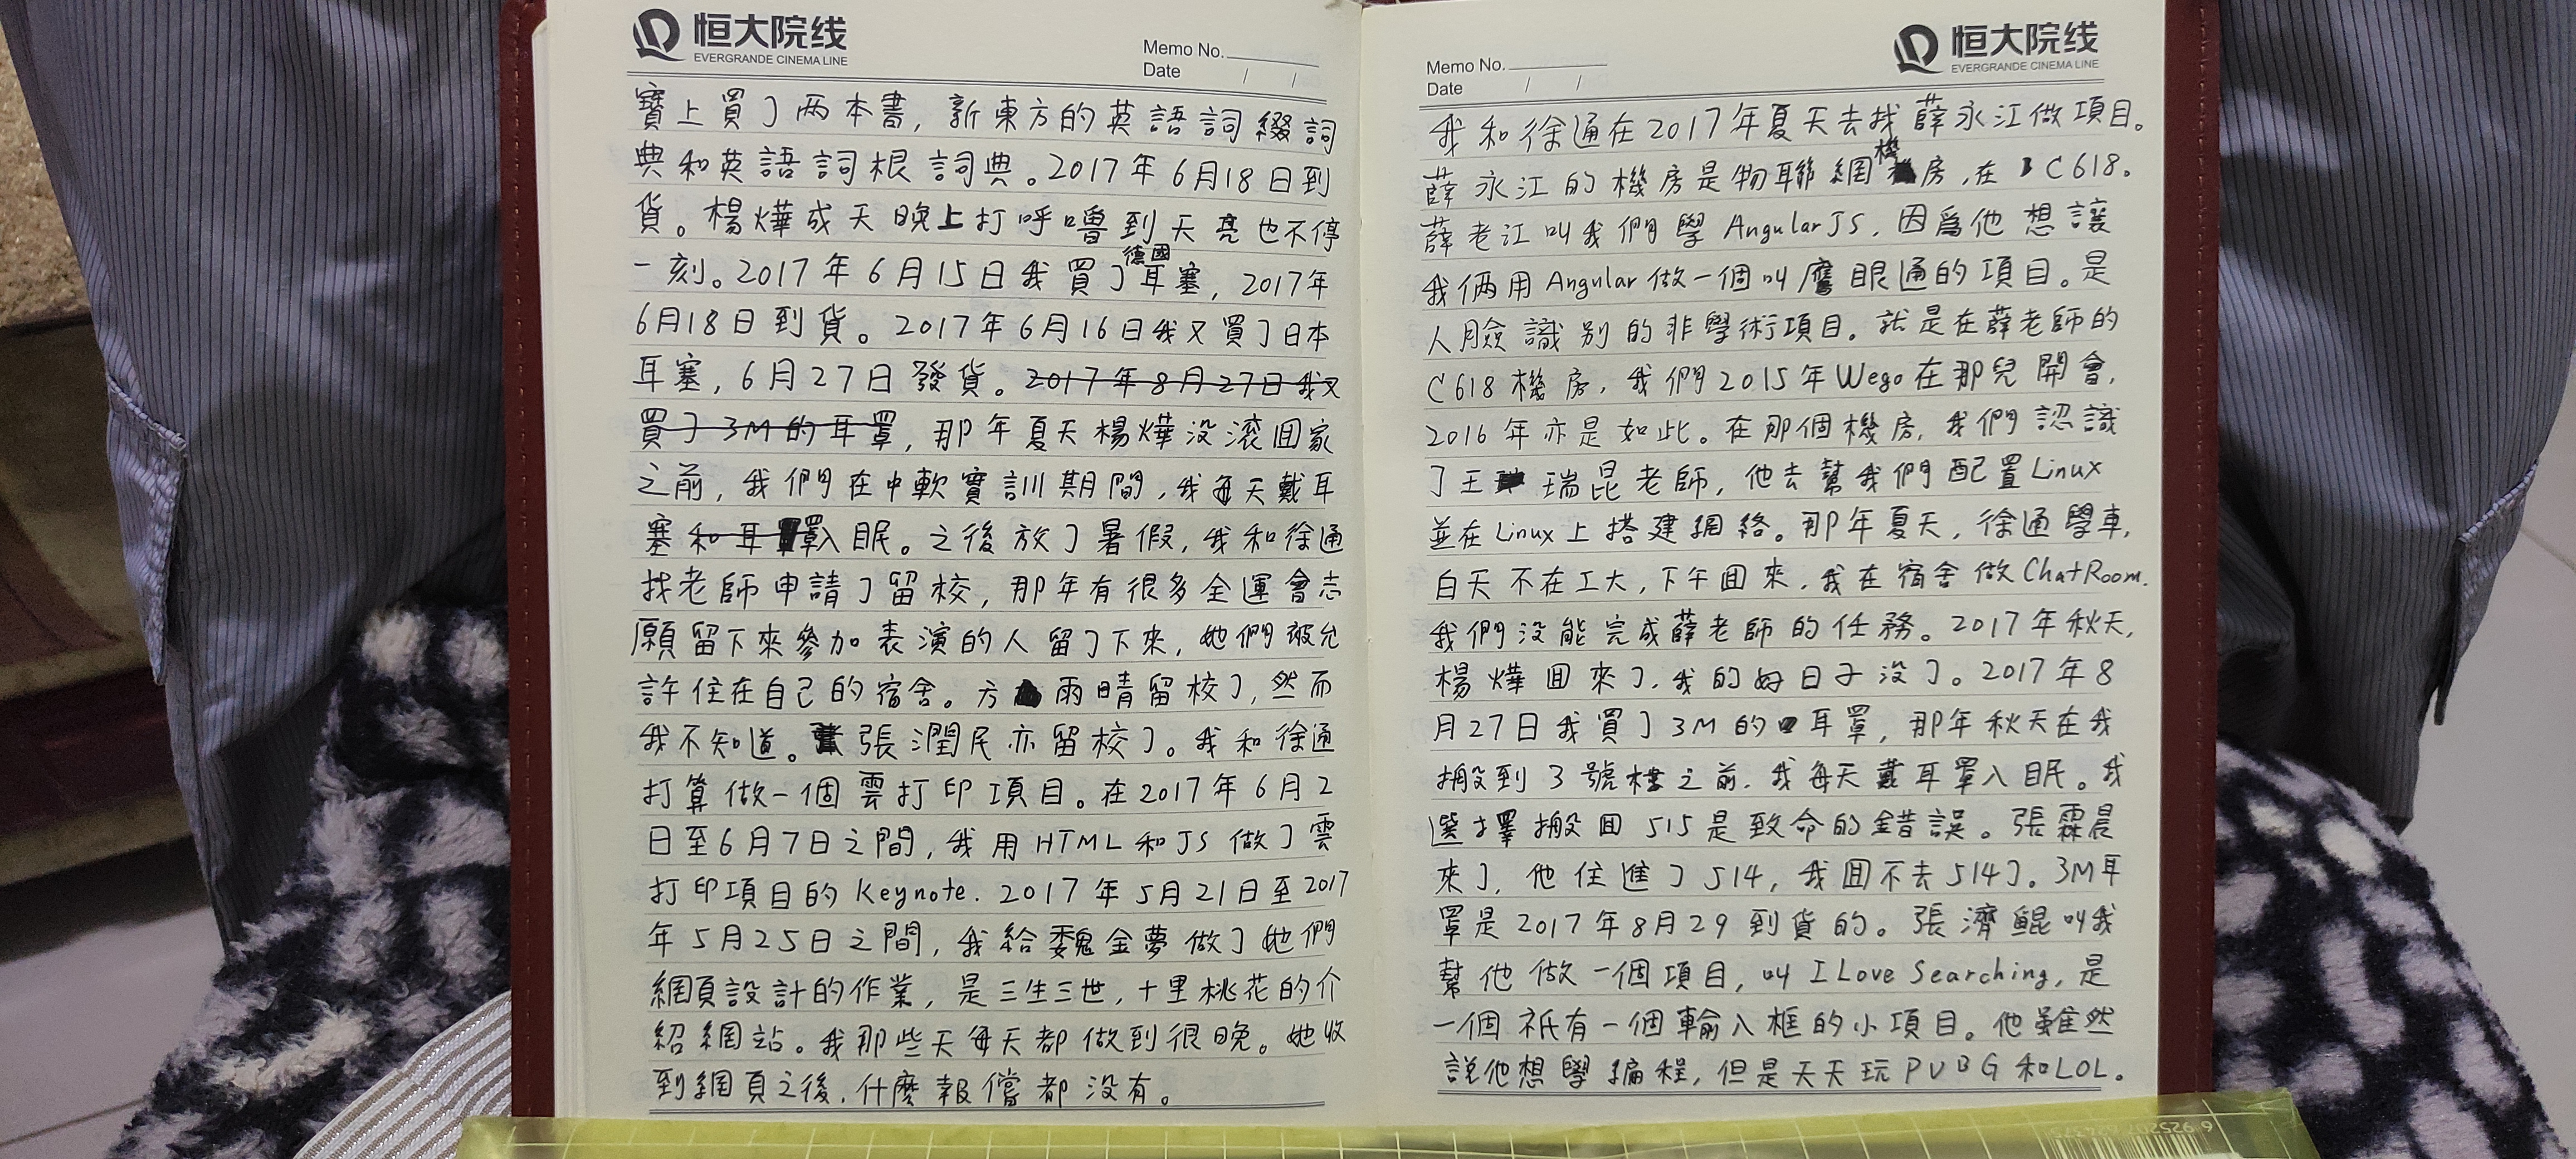 恒大院线
EVERGRANDE CINEMA LINE
Memo No.
Date / /
寶上買了两本書，新東方的英語詞綴詞
典和英語詞根詞典。2017年6月18日到
貨。楊燁成天晚上打呼嚕到天亮也不停
德國
一刻。2017年6月15日我買了耳塞，2017年
6月18日到貨。2017年6月16日我又買了日本
耳塞，6月27日發貨。2017年8月27日我又
買了3M的耳罩，那年夏天楊燁没滚回家
之前，我們在中軟實訓期間，我每天戴耳
塞和耳罩入眠。之後放了暑假，我和徐通
找老師申請了留校，那年有很多全運會志
願留下來參加表演的人留了下來，她們被允
許住在自己的宿舍。方雨晴留校了，然而
我不知道。張潤民亦留校了。我和徐通
打算做一個雲打印項目。在2017年6月2
日至6月7日之間，我用HTML和JS做了雲
打印項目的Keynote. 2017年5月21日至2017
年5月25日之間，我給魏金夢做了她們
網頁設計的作業，是三生三世，十里桃花的介
紹網站。我那些天每天都做到很晚。她收
到網頁之後，什麽報償都没有。
恒大院线
EVERGRANDE CINEMA LINE
Memo No.
Date / /
我和徐通在2017年夏天去找薛永江做項目。
機
薛永江的機房是物聯網房，在C618。
薛老江叫我們學AngularJS，因爲他想讓
我俩用Angular做一個叫鷹眼通的項目。是
人臉識别的非學術項目。就是在薛老師的
C618機房，我們2015年Wego在那兒開會，
2016年亦是如此。在那個機房，我們認識
了王瑞昆老師，他去幫我們配置Linux
並在Linux上搭建網絡。那年夏天，徐通學車，
白天不在工大，下午囬來，我在宿舍做ChatRoom.
我們没能完成薛老師的任務。2017年秋天，
楊燁囬來了，我的好日子没了。2017年8
月27日我買了3M的耳罩，那年秋天在我
搬到3號楼之前，我每天戴耳罩入眠。我
選擇搬囬515是致命的錯誤。張霖晨
來了，他住進了514，我囬不去514了。3M耳
罩是2017年8月29到貨的。張濟鲲叫我
幫他做一個項目，叫I Love Searching，是
一個祇有一個輸入框的小項目。他雖然
説他想學編程，但是天天玩PUBG和LOL。